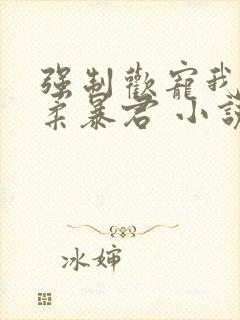 强制歡寵我
柔暴君 小說
冰婶